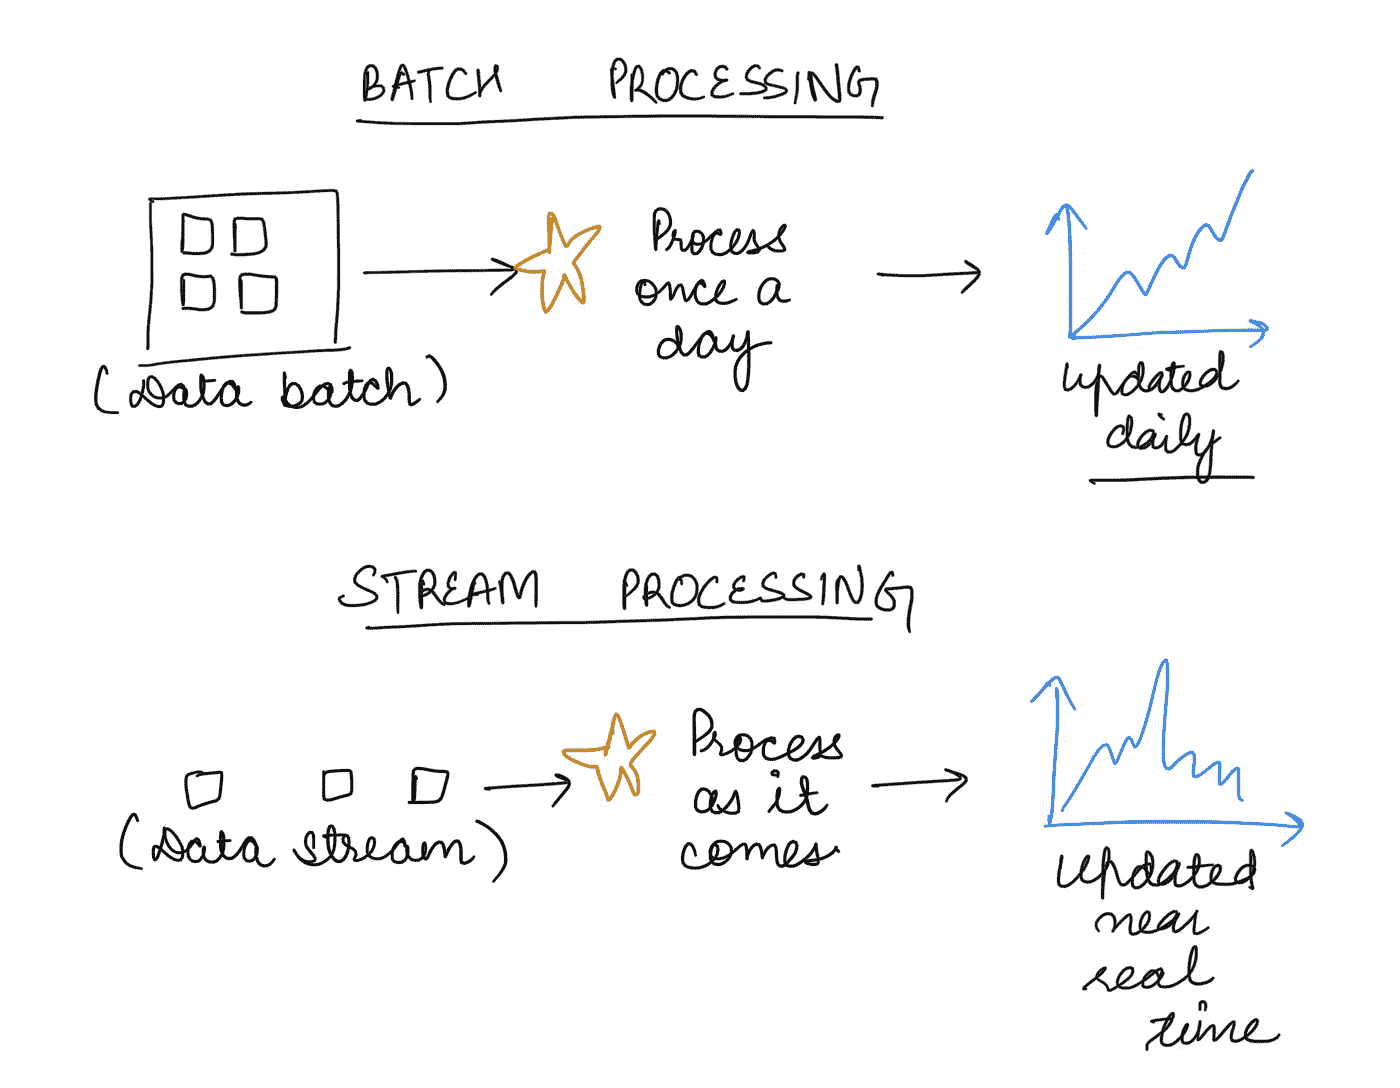 BATCH PROCESSING
(Data batch)
Process
once a
day
updated
daily
STREAM PROCESSING
(Data stream)
Process
as it
comes
updated
near
real
time